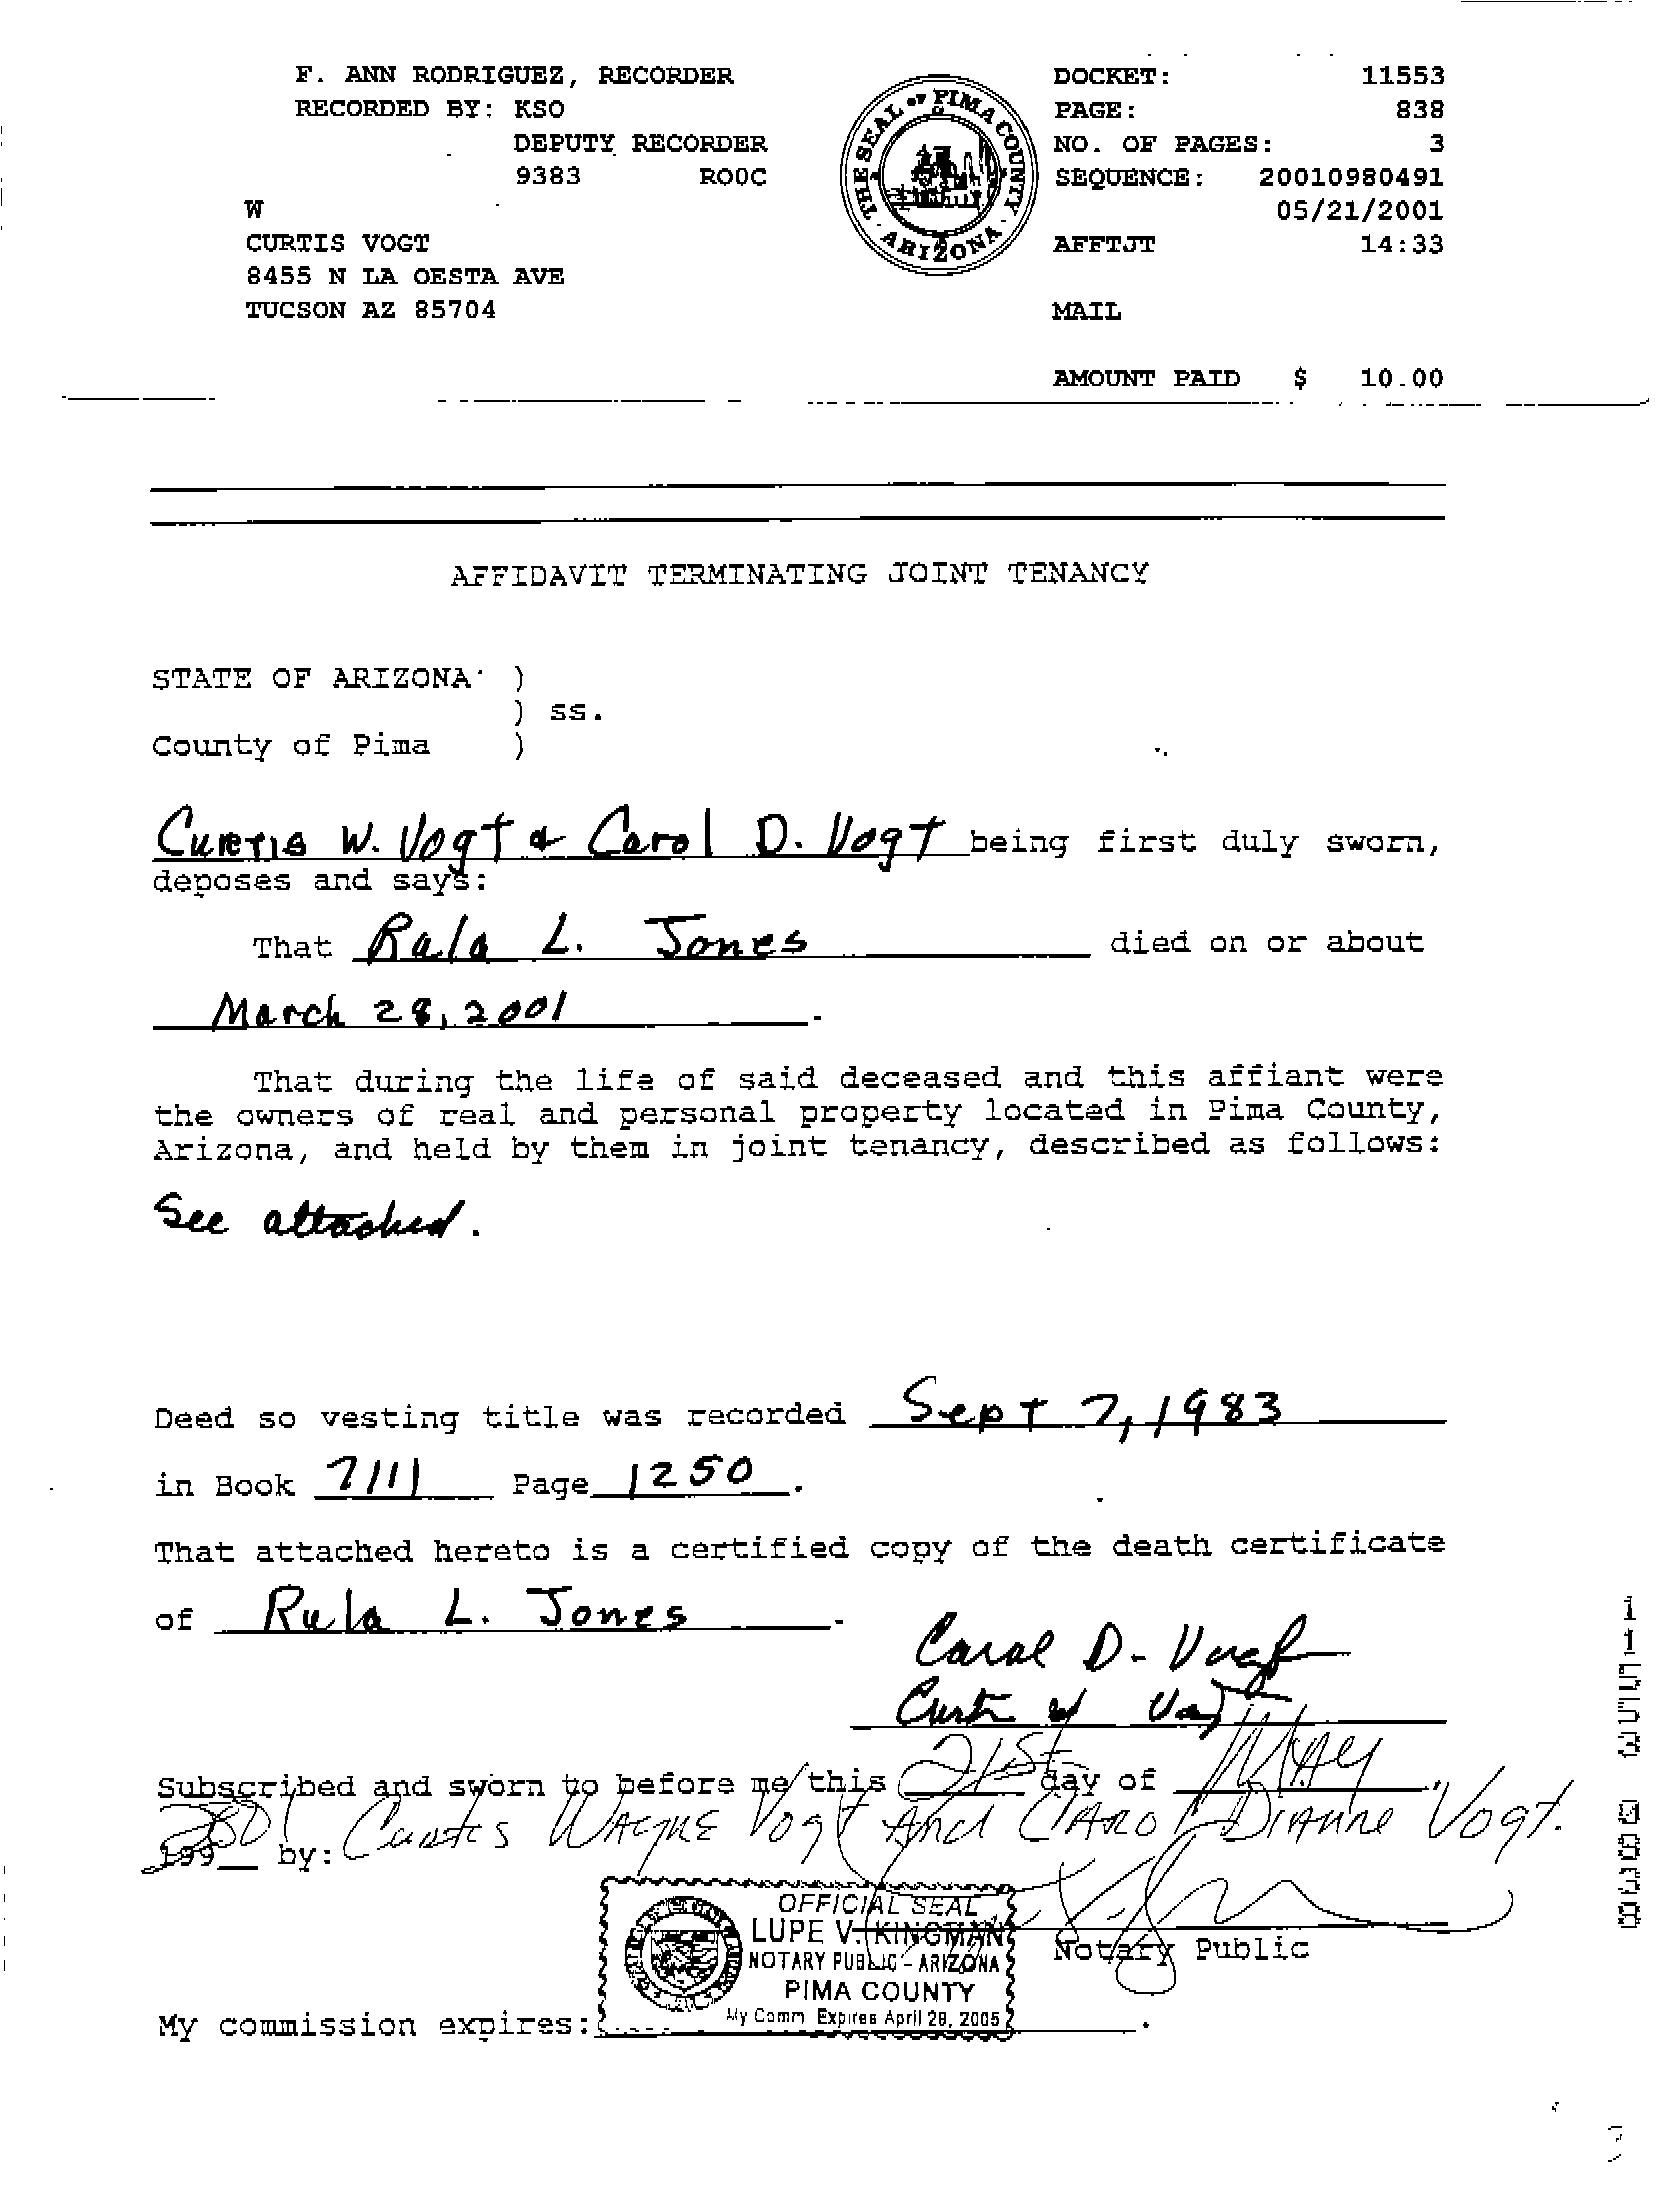 F. ANN RODRIGUEZ, RECORDER
RECORDED BY: KSO
DEPUTY RECORDER
9383 ROOC
W
CURTIS VOGT
8455 N LA OESTA AVE
TUCSON AZ 85704
THE SEAL OF PIMA COUNTY · ARIZONA ·
DOCKET: 11553
PAGE: 838
NO. OF PAGES: 3
SEQUENCE: 20010980491
05/21/2001
AFFTJT 14:33
MAIL
AMOUNT PAID $ 10.00
AFFIDAVIT TERMINATING JOINT TENANCY
STATE OF ARIZONA )
) ss.
County of Pima )
Curtis W. Vogt & Carol D. Vogt being first duly sworn,
deposes and says:
That Rula L. Jones died on or about
March 28, 2001.
That during the life of said deceased and this affiant were
the owners of real and personal property located in Pima County,
Arizona, and held by them in joint tenancy, described as follows:
See attached.
Deed so vesting title was recorded Sept 7, 1983
in Book 7111 Page 1250.
That attached hereto is a certified copy of the death certificate
of Rula L. Jones.
Carol D. Vogt
Curtis W Vogt
Subscribed and sworn to before me this 21st day of MAy,
2001 199_ by: Curtis WAyNE Vogt And CARol DiANNe Vogt.
OFFICIAL SEAL
LUPE V. KINGMAN
NOTARY PUBLIC - ARIZONA
PIMA COUNTY
My Comm. Expires April 29, 2005
Notary Public
My commission expires: .
11553 00838